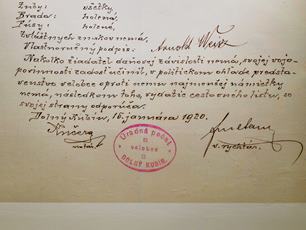 Zuby: všetky,
Brada: holená,
Fúzy: holené,
Zvláštnych znakov nemá.
Vlastnoručný podpis:
Nakoľko žiadateľ daňovej závislosti nemá, svojej vojo-
povinnosti zadosťučinil, v politickom ohľade predsta-
venstvo veľobce oproti nemu najmenšej námietky
nemá, následkom toho vydatie cestovného listu, so
svojej strany odporúča.
Dolný Kubín, 16. januára 1920.
notár.
v. rychtár.
Úradná pečať
veľobce
DOLNÝ KUBÍN